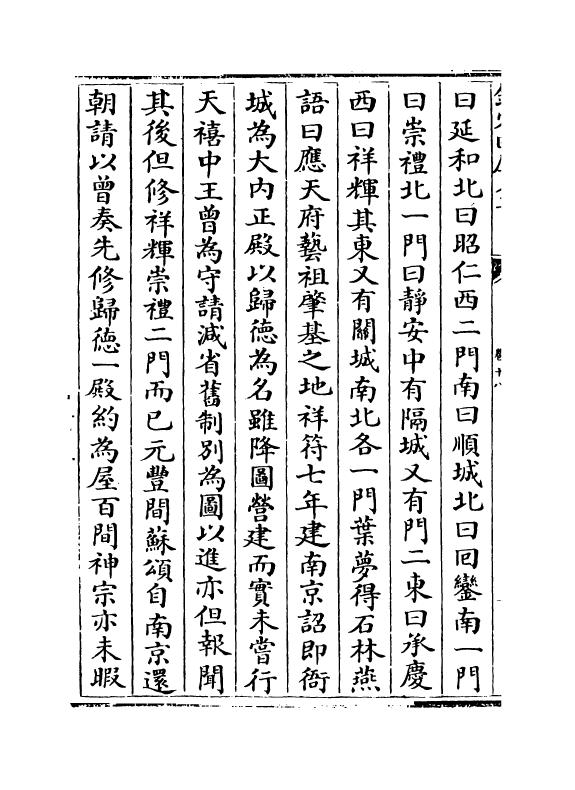 曰延和北曰昭仁西二門南曰順城北曰囘鑾南一門
曰崇禮北一門曰靜安中有隔城又有門二東曰承慶
西曰祥輝其東又有關城南北各一門葉夢得石林燕
語曰應天府藝祖肇基之地祥符七年建南京詔即衙
城為大内正殿以歸徳為名雖降圖營建而實未嘗行
天禧中王曾為守請減省舊制别為圖以進亦但報聞
其後但修祥輝崇禮二門而已元豐間蘇頌自南京還
朝請以曾奏先修歸徳一殿約為屋百間神宗亦未暇